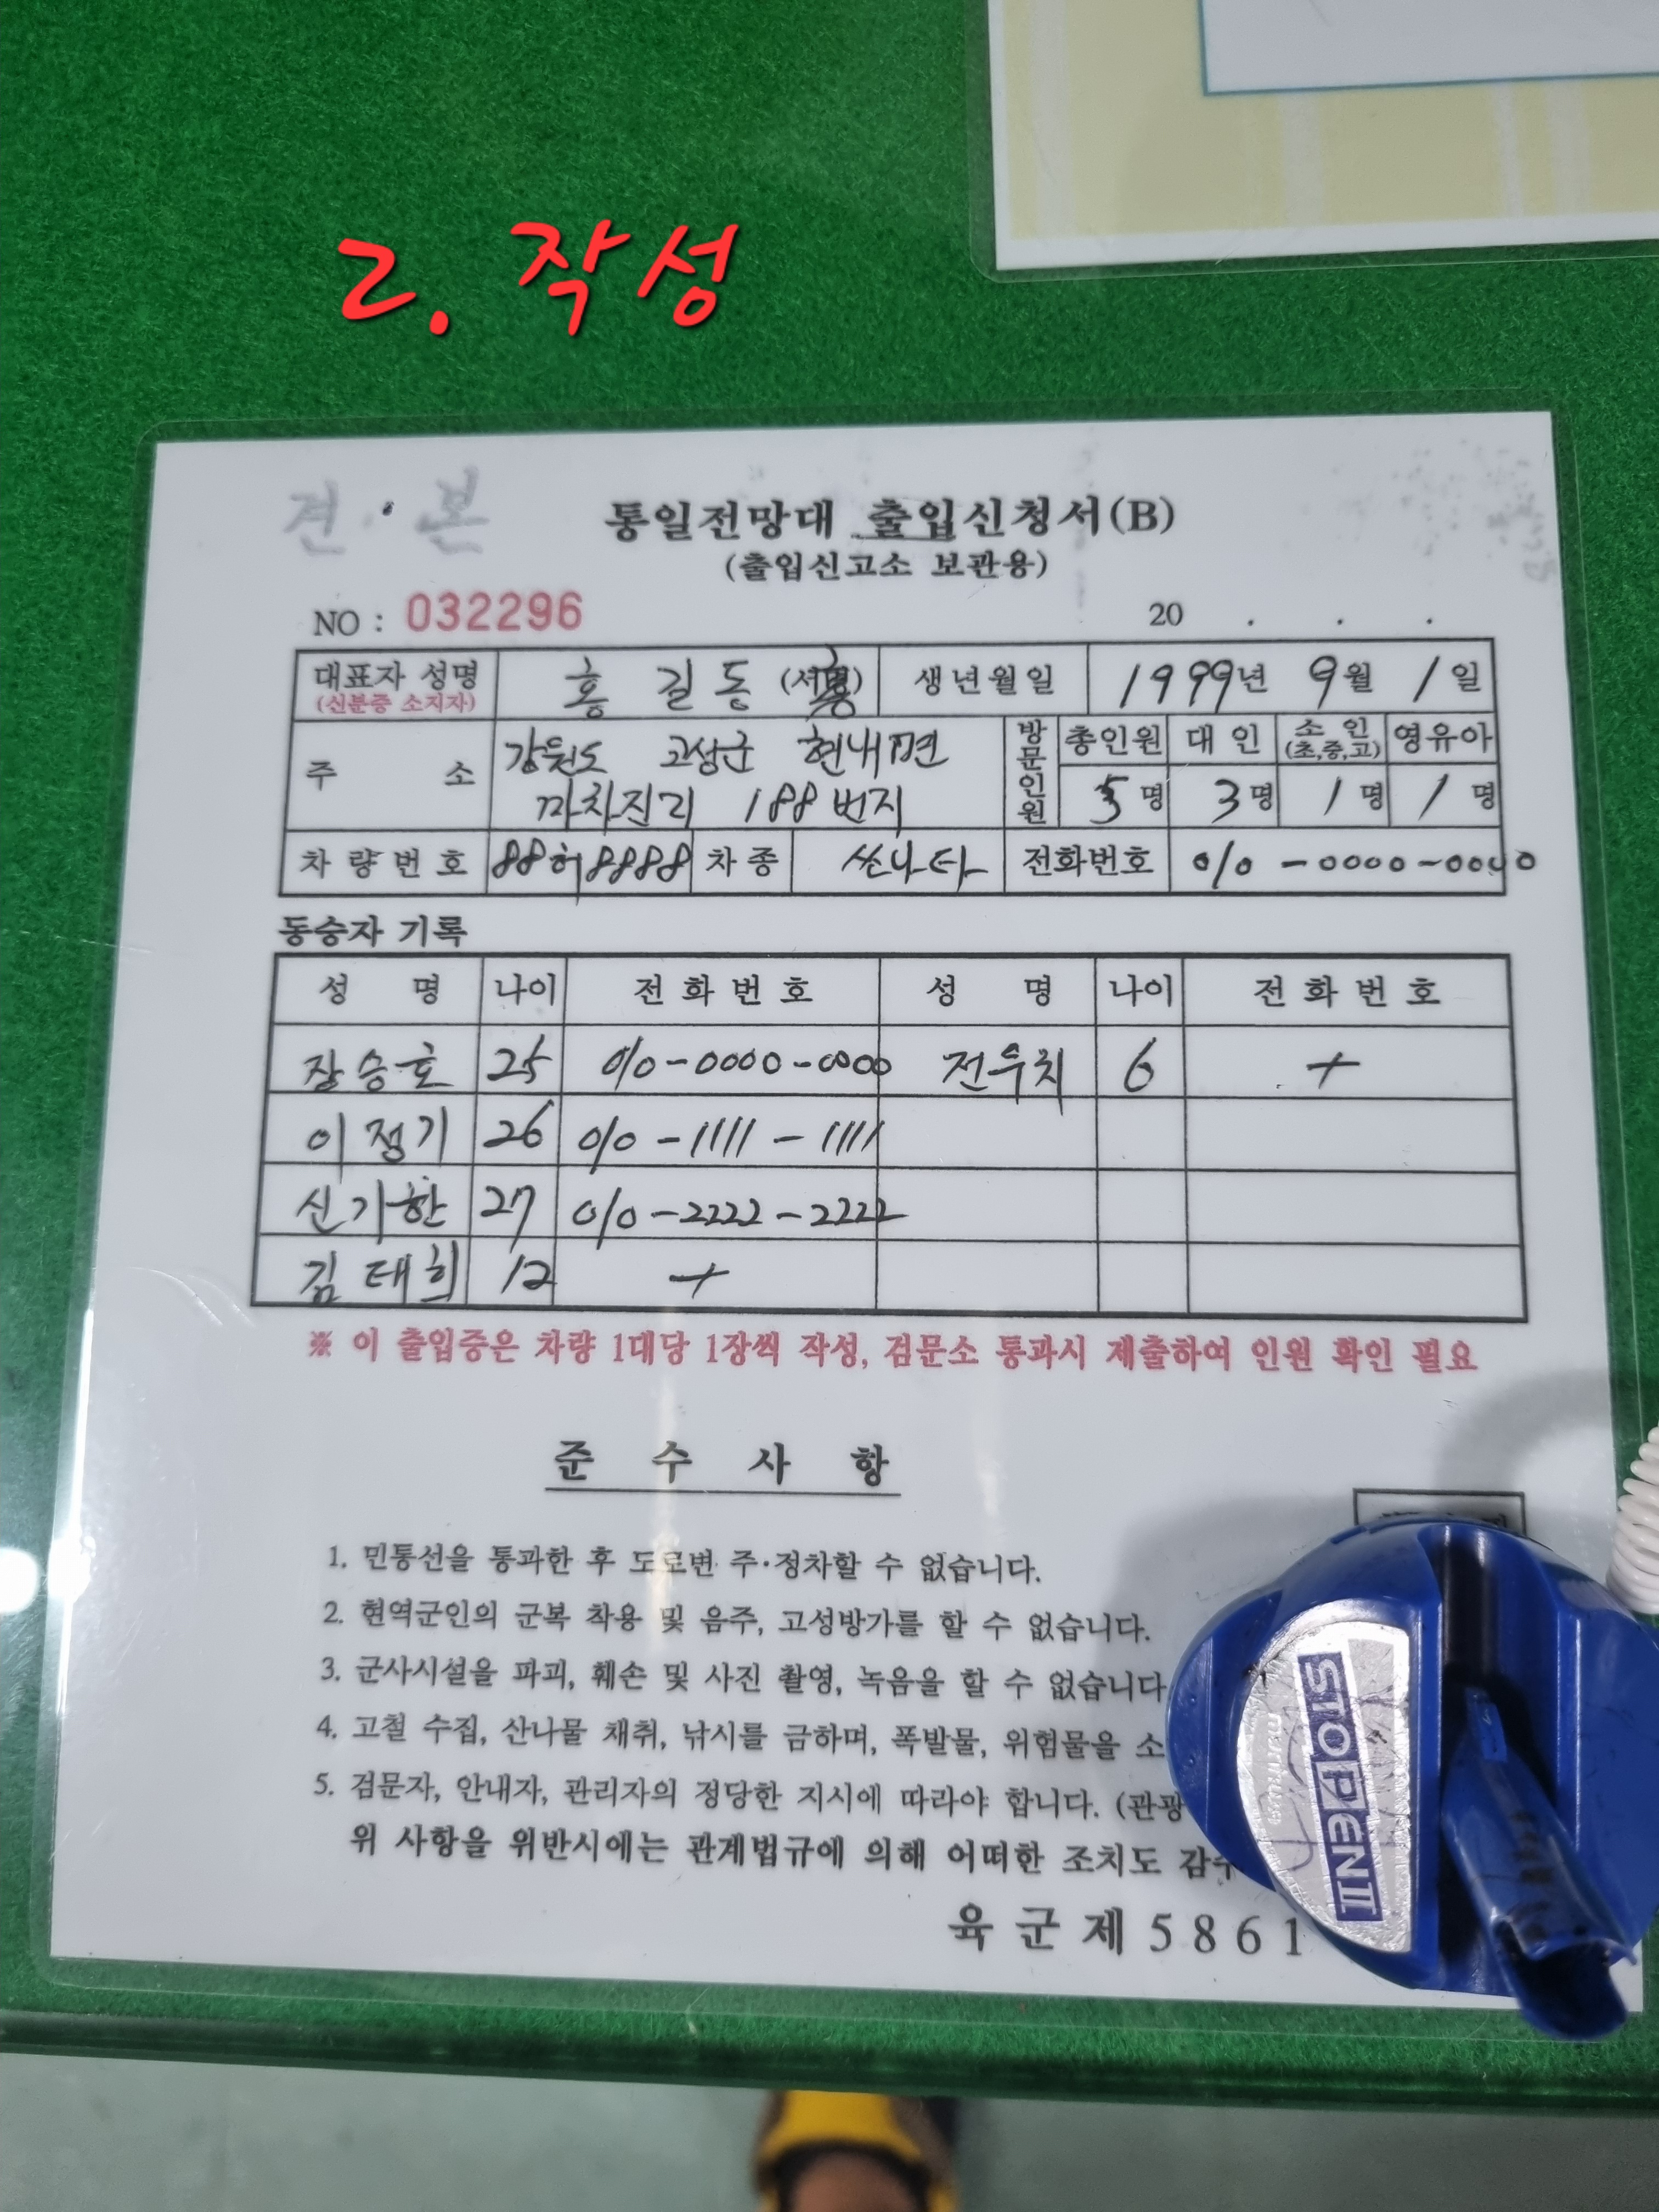 2. 작성
견·본
통일전망대 출입신청서(B)
(출입신고소 보관용)
NO : 032296 20 . . .
대표자 성명 홍 길 동 생년월일 1999년 9월 1일
(신분증 소지자)
주 소 강원도 고성군 현내면
마차진리 188번지
방문인원 총인원 대인 소인 (초,중,고) 영유아
5명 3명 1명 1명
차량번호 88허8888 차종 쏘나타 전화번호 010-0000-0000
동승자 기록
성 명 나이 전화번호 성 명 나이 전화번호
장승호 25 010-0000-0000 전우치 6 +
이정기 26 010-1111-1111
신기한 27 010-2222-2222
김태희 12 +
※ 이 출입증은 차량 1대당 1장씩 작성, 검문소 통과시 제출하여 인원 확인 필요
준 수 사 항
1. 민통선을 통과한 후 도로변 주·정차할 수 없습니다.
2. 현역군인의 군복 착용 및 음주, 고성방가를 할 수 없습니다.
3. 군사시설을 파괴, 훼손 및 사진 촬영, 녹음을 할 수 없습니다
4. 고철 수집, 산나물 채취, 낚시를 금하며, 폭발물, 위험물을 소
5. 검문자, 안내자, 관리자의 정당한 지시에 따라야 합니다. (관광
위 사항을 위반시에는 관계법규에 의해 어떠한 조치도 감수
육군제5861
STOPEN II